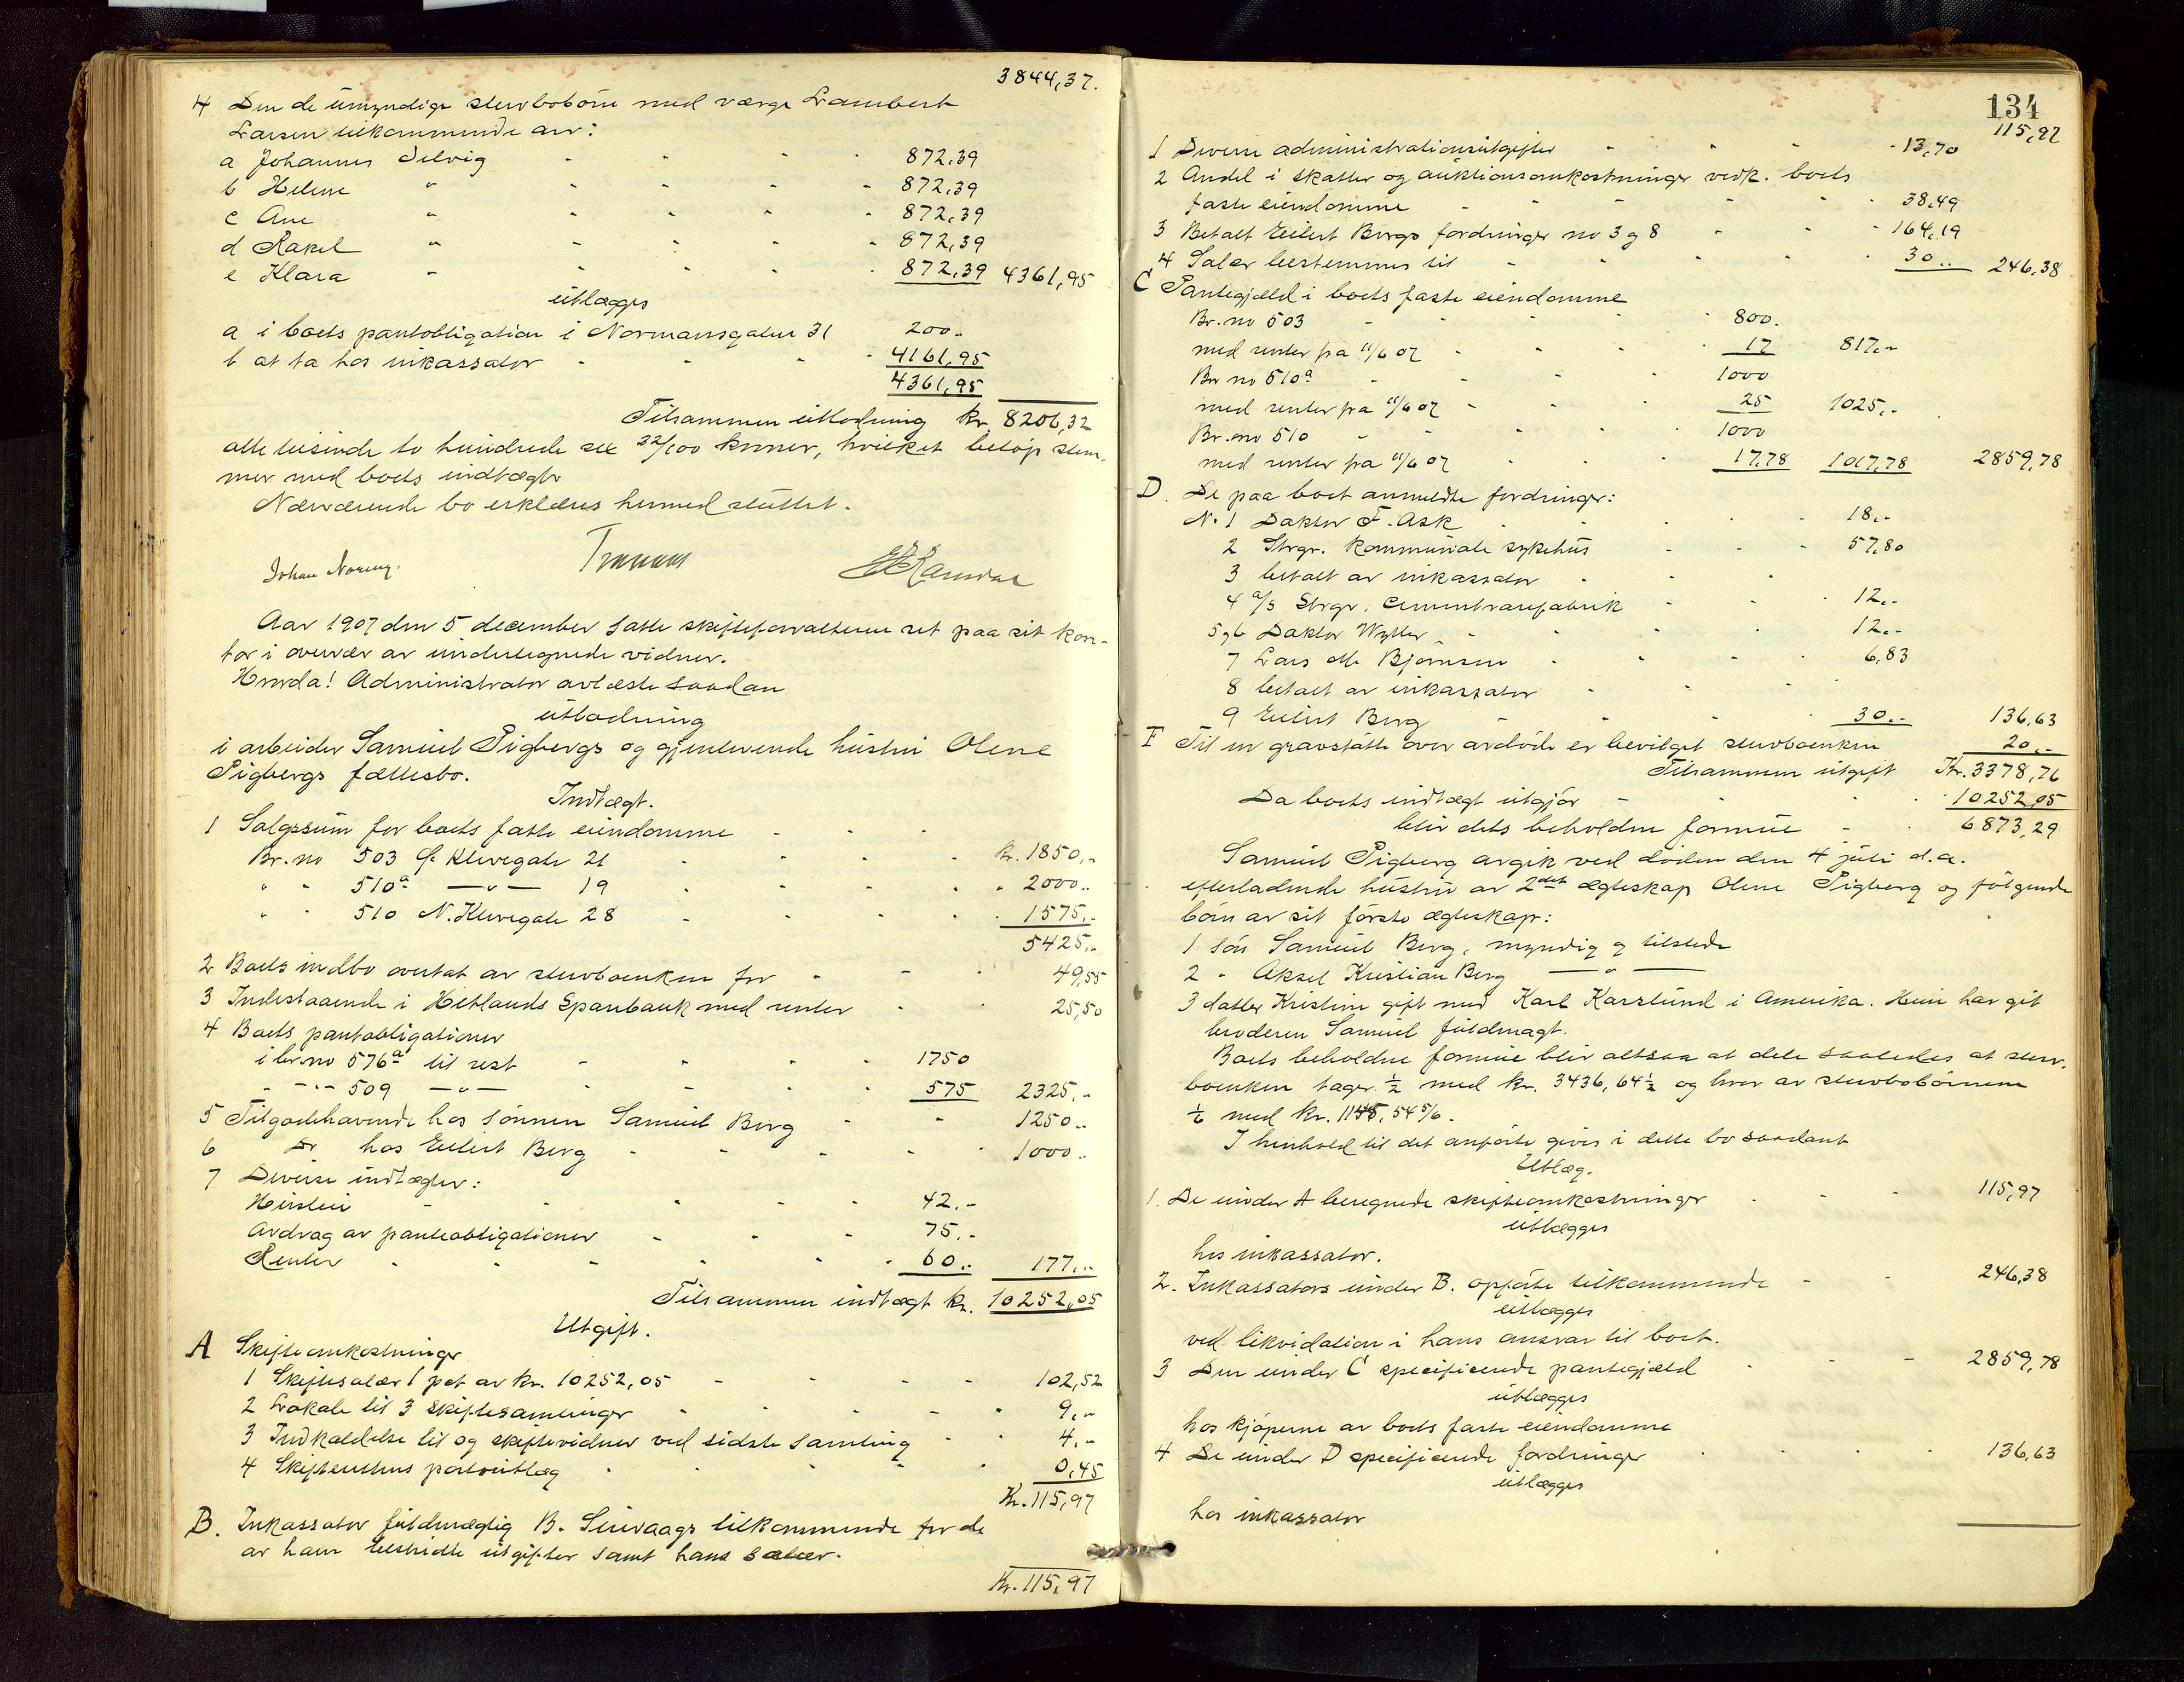 3844,37.
4 Den de umyndige stervbobörn med værge Lambert
Larsen tilkommende arv:
a Johannes Selvig - - - - 872,39
b Helene " - - - - 872,39
c Ane " - - - - 872,39
d Rakel " - - - - 872,39
e Klara " - - - - 872,39 4361,95
utlægges
a i boets pantobligation i Normansgaten 31 200.-
b at ta hos inkassator - - - 4161,95
4361,95
Tilsammen utlodning kr. 8206,32
otte tusinde to hundrede sex 32/100 kroner, hvilket belöp stem-
mer med boets indtægter
Nærværende bo erklæres hermed sluttet.
Johan Noreng.
Aar 1907 den 5 december satte skifteforvalteren ret paa sit kon-
tor i overvær av undertegnede vidner.
Hvorda! Administrator avlæste saadan
utlodning
i arbeider Samuel Pigbergs og gjenlevende hustru Olene
Pigbergs fællesbo.
Indtægt.
1 Salgssum for boets faste eiendomme - - -
Br. no 503 Ö. Klevegate 21 - - - - Kr. 1850.-
" " 510a —"— 19 - - - - " 2000..
" " 510 N. Klevegate 28 - - - - 1575.-
5425.-
2 Boets indbo overtat av stervboenken for - - - 49,55
3 Indestaaende i Hetlands Sparebank med renter - - 25,50
4 Boets pantobligationer
i br.no 576a til rest - - - - 1750
" - "- 509 —"— - - - - 575 2325.-
5 Tilgodehavende hos sönnen Samuel Berg - - 1250..
6 Do hos Eilert Berg - - - - - 1000..
7 Diverse indtægter:
Husleie - - - - - 42.-
Avdrag av panteobligationer - - - 75.-
Renter - - - - - - 60.. 177...
Tilsammen indtægt kr. 10252,05
Utgift.
A Skifteomkostninger
1 Skiftesalær 1 pct av kr. 10252,05 - - - - 102,52
2 Lokale til 3 skiftesamlinger - - - - - 9.-
3 Indkaldelse til og skiftevidner ved sidste samling - - 4.-
4 Skifterettens portoutlæg - - - - - 0,45
Kr. 115,97
B. Inkassator fuldmægtig B. Sunvaags tilkommende for de
av ham bestridte utgifter samt hans salær.
Kr. 115,97
134
115,97
1 Diverse administrationsutgifter - - - - 13,70
2 Andel i skatter og auktionsomkostninger vedk. boets
faste eiendomme - - - - - - 38,49
3 Betalt Eilert Bergs fordringer no 3 og 8 - - - 164,19
4 Salær bestemmes til - - - - - 30.. 246,38
C Pantegjæld i boets faste eiendomme
Br. no 503 - - - - - 800.
med renter fra 11/6 07 - - - - 17 817.-
Br. no 510a - - - - 1000
med renter fra 11/6 07 - - - - 25 1025.-
Br. no 510 - - - - - 1000
med renter fra 11/6 07 - - - - 17,78 1017,78 2859,78
D. De paa boet anmeldte fordringer:
No. 1 Doktor F. Ask - - - - - 18.-
2 Stvgr. kommunale sykehus - - - 57,80
3 betalt av inkassator - - -
4 A/S Stvgr. Cementvarefabrik - - - 12.-
5 og 6 Doktor Wyller - - - - 12.-
7 Lars Ole Bjørnsen - - - - 6,83
8 betalt av inkassator - - -
9 Eilert Berg - - - - 30.- 136,63
F Til en gravstötte over avdöde er bevilget stervboenken 20..
Tilsammen utgift Kr. 3378,76
Da boets indtægt utgjör - - - - 10252,05
blir dets beholdne formue - - 6873,29
Samuel Pigberg avgik ved döden den 4 juli d.a.
efterladende hustru av 2det ægteskap Olene Pigberg og fölgende
börn av sit förste ægteskap:
1 sön Samuel Berg, myndig og tilstede
2 " Aksel Kristian Berg —"—
3 datter Kristine gift med Karl Karslund i Amerika. Hun har git
broderen Samuel fuldmagt.
Boets beholdne formue blir altsaa at dele saaledes at sterv-
boenken tager 1/2 med kr. 3436,64 1/2 og hver av stervbobörnene
1/6 med kr. 1145,54 5/6.
I henhold til det anförte gives i dette bo saadant
Utlæg.
1. De under A beregnede skifteomkostninger - - - 115,97
utlægges
hos inkassator.
2. Inkassators under B. opförte tilkommende - - 246,38
utlægges
ved likvidation i hans ansvar til boet.
3 Den under C specificerede pantegjæld - - 2859,78
utlægges
hos kjöperne av boets faste eiendomme
4 De under D specificerede fordringer - - - - 136,63
utlægges
hos inkassator